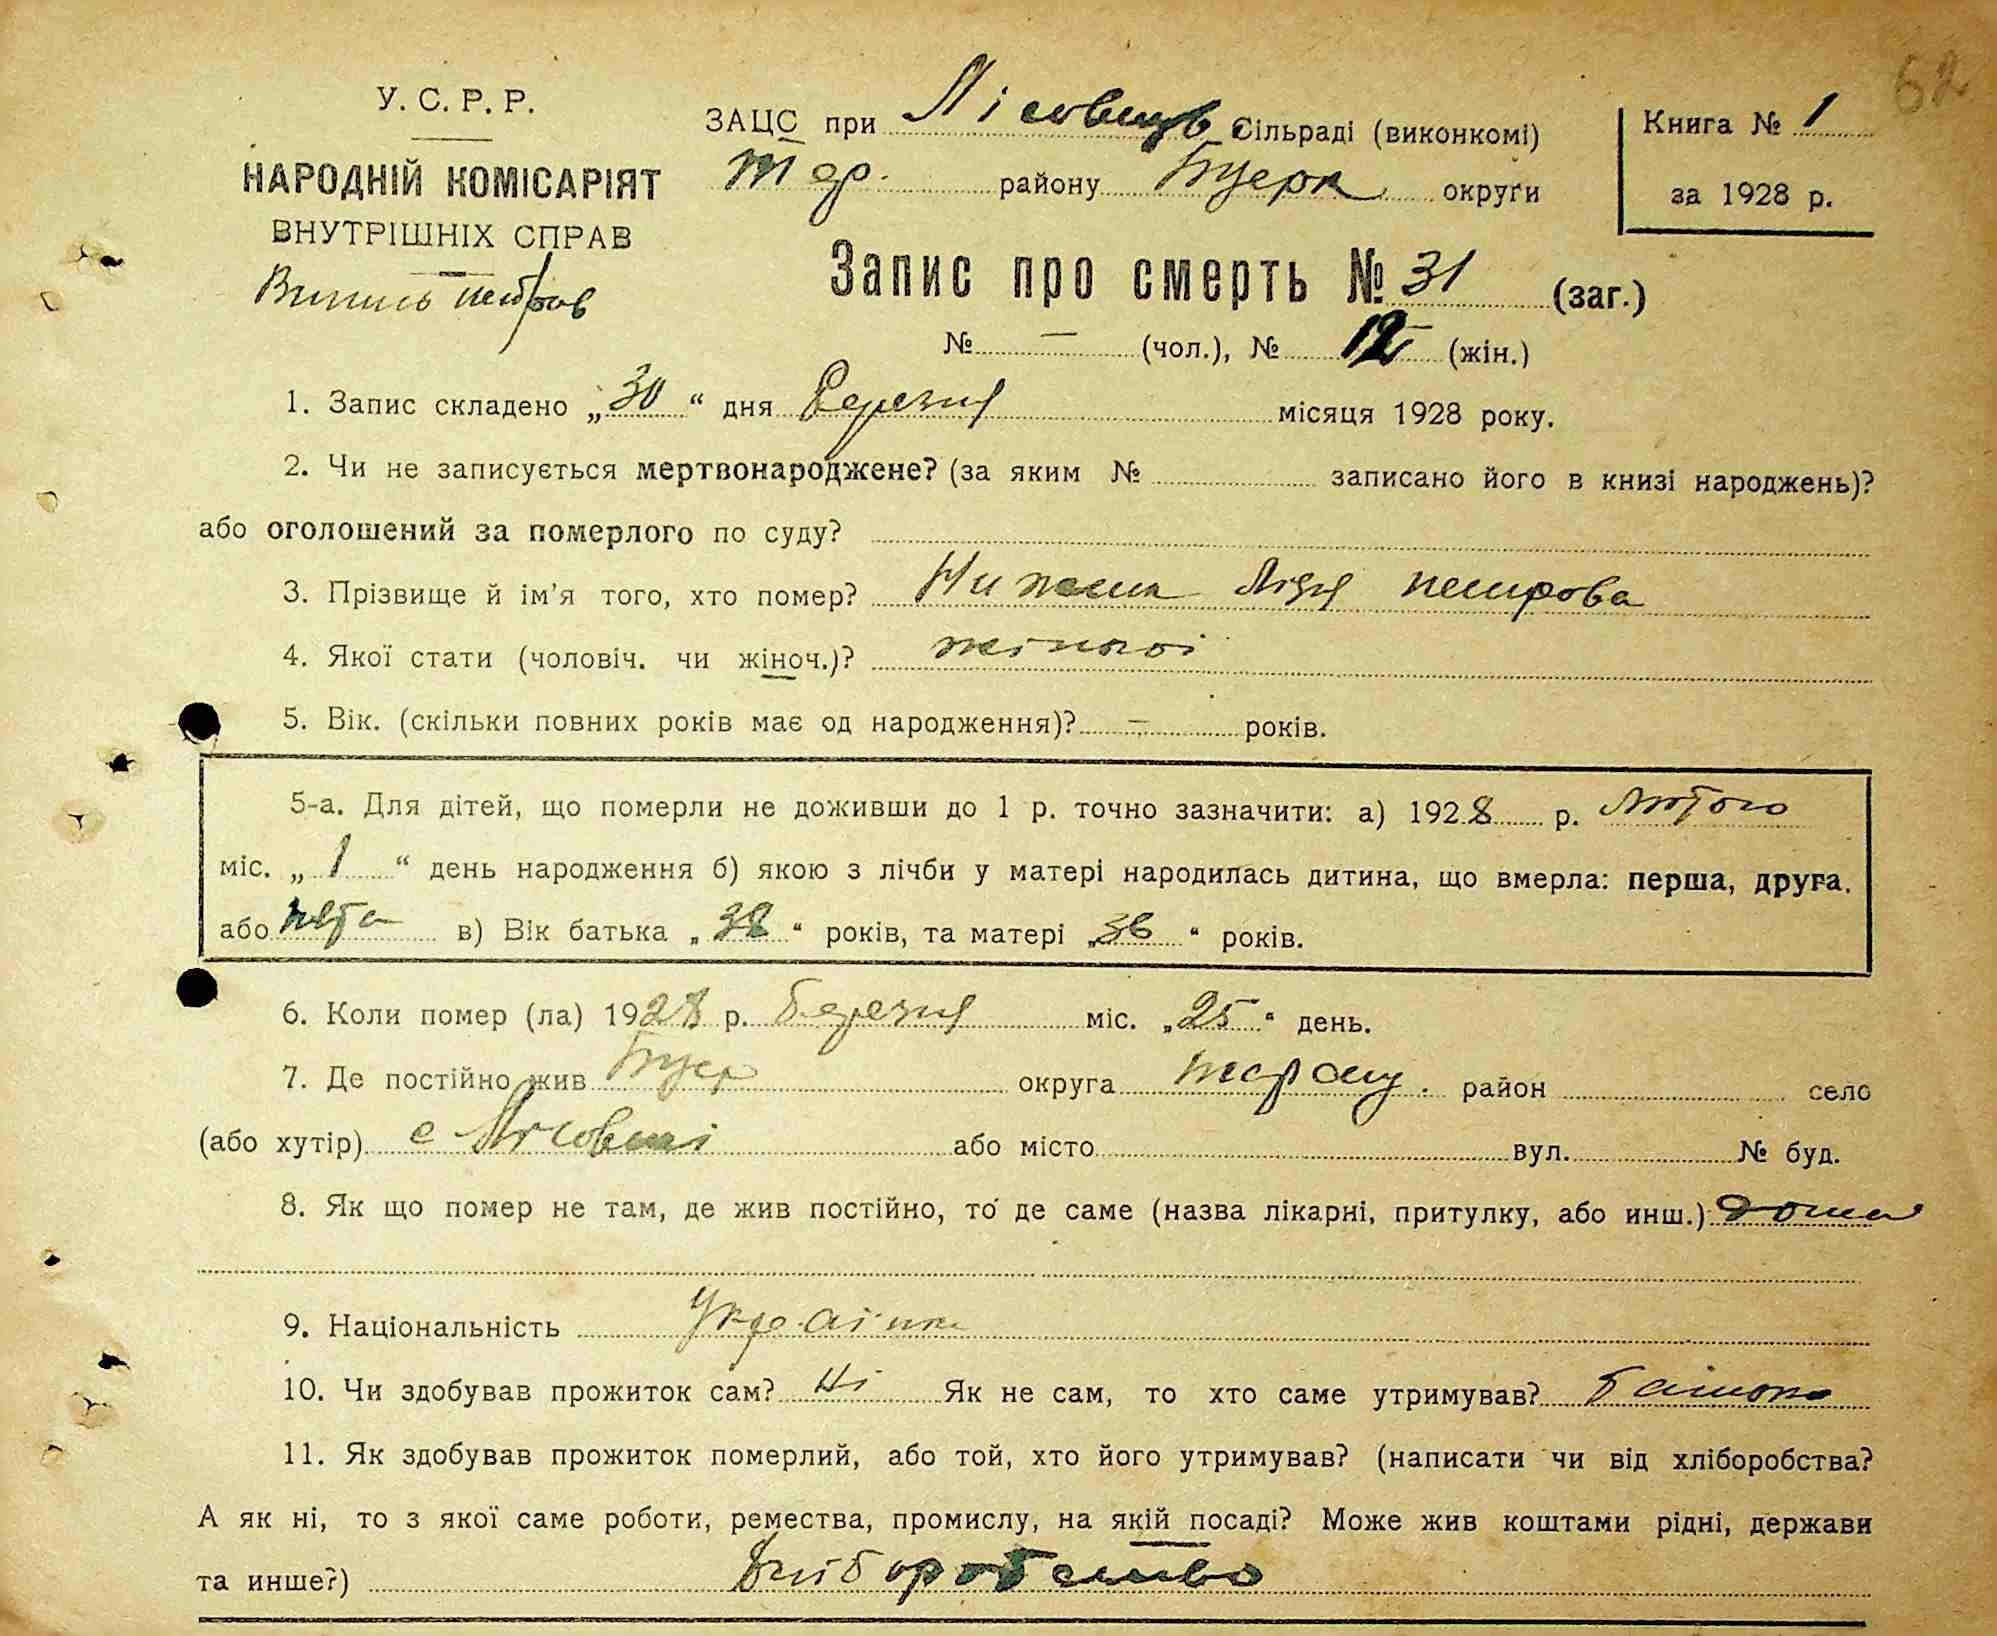 62
У. С. Р. Р.
НАРОДНІЙ КОМІСАРІЯТ
ВНУТРІШНІХ СПРАВ
ЗАЦС при Лісовецк Сільраді (виконкомі)
району округи
Книга № 1
за 1928 р.
Запис про смерть № 31 (заг.)
№ — (чол.), № 12 (жін.)
1. Запис складено „30“ дня Березня місяця 1928 року.
2. Чи не записується мертвонароджене? (за яким № записано його в книзі народжень)?
або оголошений за померлого по суду?
3. Прізвище й ім’я того, хто помер? Лідя петрова
4. Якої стати (чоловіч. чи жіноч.)? жіночої
5. Вік. (скільки повних років має од народження)? — років.
5-а. Для дітей, що померли не доживши до 1 р. точно зазначити: а) 1928 р. Лютого
міс. „1“ день народження б) якою з лічби у матері народилась дитина, що вмерла: перша, друга,
або пята в) Вік батька „38“ років, та матері „36“ років.
6. Коли помер (ла) 1928 р. березня міс. „25“ день.
7. Де постійно жив округа район село
(або хутір) с Лісовецкі або місто вул. № буд.
8. Як що помер не там, де жив постійно, то де саме (назва лікарні, притулку, або инш.) дома
9. Національність Українка
10. Чи здобував прожиток сам? Ні Як не сам, то хто саме утримував? батько
11. Як здобував прожиток померлий, або той, хто його утримував? (написати чи від хліборобства?
А як ні, то з якої саме роботи, ремества, промислу, на якій посаді? Може жив коштами рідні, держави
та инше?) хліборобство